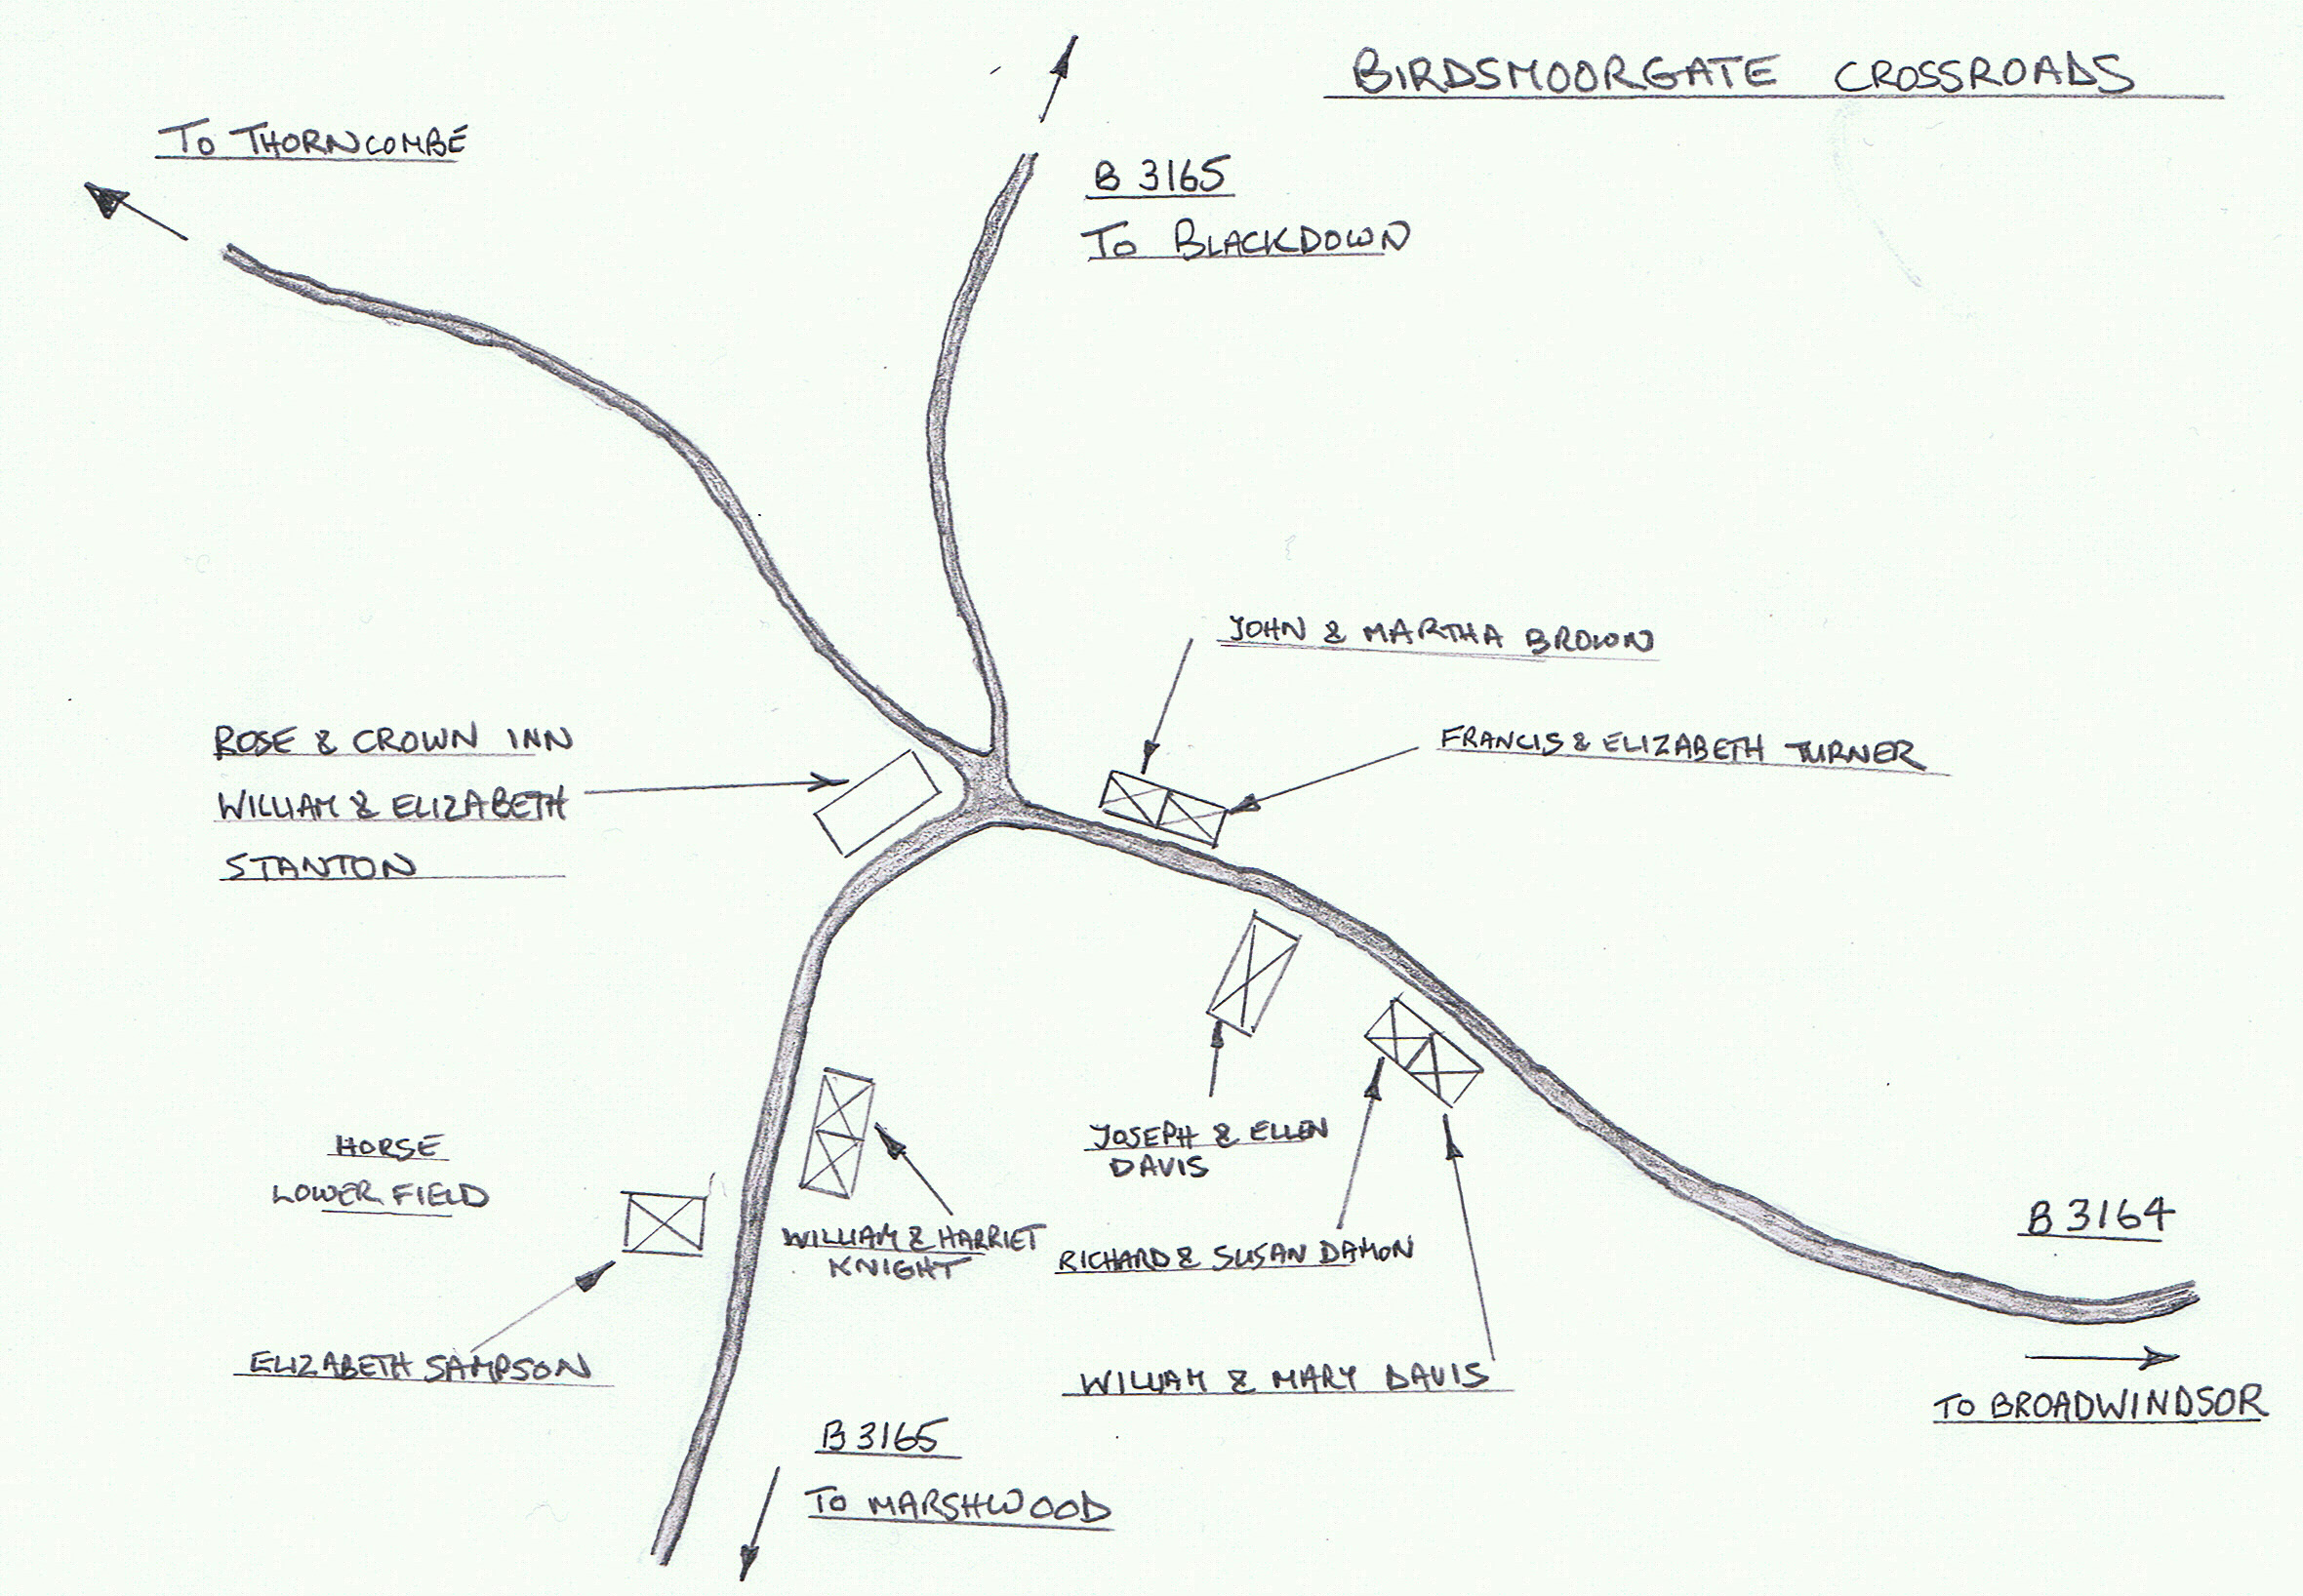 BIRDSMOORGATE CROSSROADS
TO THORNCOMBE
B 3165
TO BLACKDOWN
JOHN & MARTHA BROWN
FRANCIS & ELIZABETH TURNER
ROSE & CROWN INN
WILLIAM & ELIZABETH
STANTON
HORSE
LOWER FIELD
JOSEPH & ELLEN
DAVIS
WILLIAM & HARRIET
KNIGHT
RICHARD & SUSAN DAMON
B 3164
ELIZABETH SAMPSON
WILLIAM & MARY DAVIS
TO BROADWINDSOR
B 3165
TO MARSHWOOD